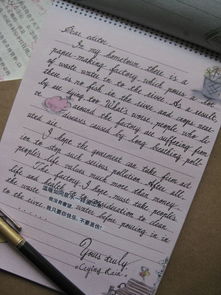 Dear editor:
In my hometown, there is a
paper-making factory which pours
of waste water in to the river. As a result
there is no fish in the river and crops near
by are dying too. What's worse, people who li
ve around the factory are suffering from
diseases caused by long-standing poll-
ution.
I hope the government can take firm act
ion to stop such serious pollution. After all
people's life values much more than money
The factory, I hope, must take people's
life and health into consideration to clean
the waste water before pouring in to
the river.
Yours truly,